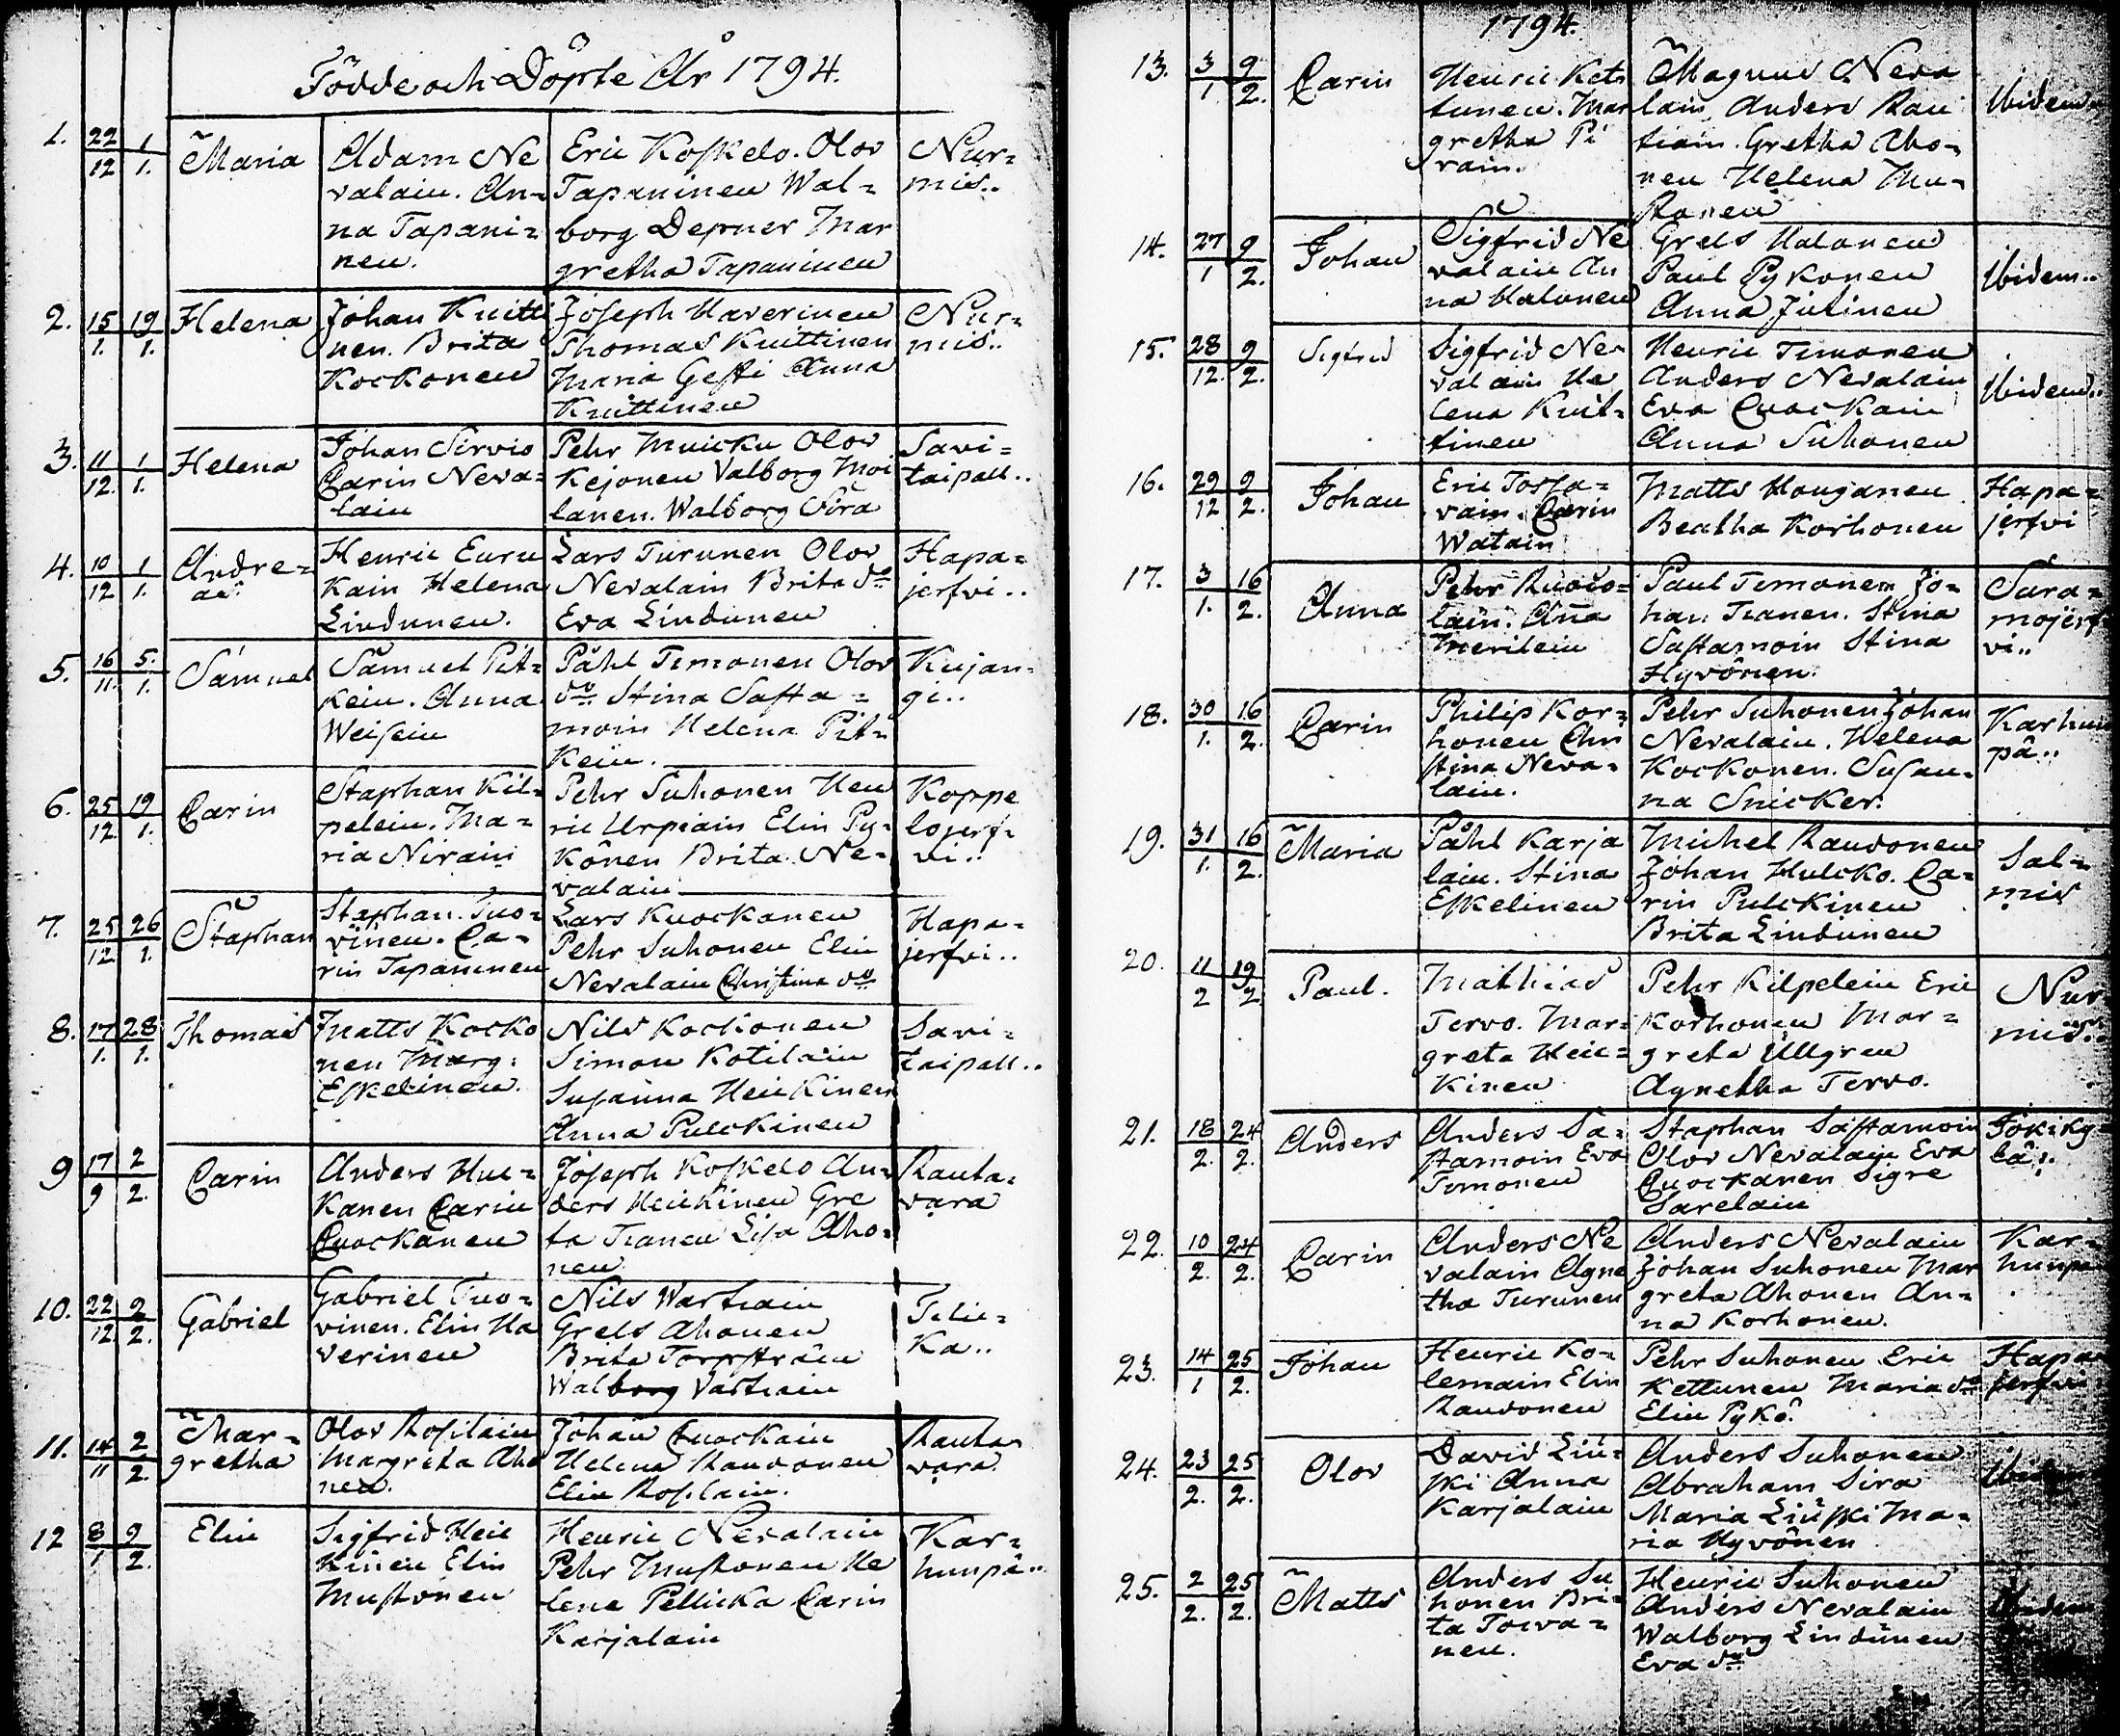 Födde och Döpte År 1794.
1. 22/12 1/1. Maria
Adam Ne
valain. An-
na Tapani=
nen.
Eric Koskelo. Olov
Tapaninen Wal=
borg Depner Mar
gretha Tapaninen
Nur=
mis..
2. 15/1. 19/1. Helena
Johan Kuitti
nen. Brita
Kockonen
Joseph Haverinen
Thomas Kuittinen
Maria Gesti Anna
Kuittinen
Nur=
mis..
3. 11/12. 1/1. Helena
Johan Sirvio
Carin Neva=
lain
Pehr Muicku Olov
Kejonen Valborg Moi
lanen. Walborg Sira
Savi=
taipall..
4. 10/12 1/1. Andre=
as.
Henric Euru
Kain Helena
Lindunen.
Lars Turunen Olov
Nevalain Brita do
Eva Lindunen
Hapa=
jerfvi..
5. 16/11. 5./1. Samuel
Samuel Pit=
kein. Anna
Weisein
Påhl Timonen Olov
do Stina Sasta=
moin Helena Pit=
Kein.
Kujan=
gi..
6. 25/12 19/1. Carin
Staphan Kil=
pelein. Ma=
ria Nirain
Pehr Suhonen Hen
ric Urpiain Elin Py=
Könen Brita Ne=
valain
Koppe
lojerf=
vi..
7. 25/12 26/1. Staphan
Staphan Tuo=
vinen. Ca=
rin Tapaninen
Lars Kuockanen
Pehr Suhonen Elin
Nevalain Christina do
Hapa=
jerfvi..
8. 17/1. 28/1. Thomas
Matts Kocko
nen Marg:
Eskelinen.
Nils Kockonen
Simon Kotilain
Susanna Heickinen
Anna Pulckinen
Savi=
taipall..
9 17/9 2/2. Carin
Anders Hue=
Kanen Carin
Quockanen
Joseph Koskelo An=
ders Heickinen Gre
ta Tianen Lisa Aho=
nen
Rauta=
vara
10. 22/12. 2/2. Gabriel
Gabriel Tuo=
vinen. Elin Ha
verinen
Nils Wartiain
Grels Ahonen
Brita Torpström
Walborg Vartiain
Telie=
Ka..
11. 14/11 2/2. Mar=
gretha
Olov Rosilain
Margreta Aho
nen.
Johan Quockain
Helena Raudonen
Elin Rosilain.
Rauta=
vara
12 8/1 9/2. Elin
Sigfrid Heic
Kinen Elin
Mustonen
Henric Nevalain
Pehr Mustonen He
lena Pellicka Carin
Karjalain
Kar=
hunpä..
1794.
13. 3/1 9/2. Carin
Henric Ket
tunen. Mar
gretha Pi
rain.
Magnus Neva
lain, Anders Rau
tiain. Gretha Aho=
nen Helena Mu=
stonen
Ibidem
14. 27/1 9/2. Johan
Sigfrid Ne
valain An
na Halonen
Grels Halonen
Paul Pykonen
Anna Jutinen
Ibidem..
15. 28/12. 9/2. Sigfrid
Sigfrid Ne=
valain He
lena Kuit=
tinen
Henric Timonen
Anders Nevalain
Eva Quockain
Anna Suhonen
Ibidem..
16. 29/12 9/2. Johan
Eric Tossa=
vain. Carin
Watain
Matts Houganen
Beatha Korhonen
Hapa=
jerfvi
17. 3/1. 16/2. Anna
Pehr Ruoto=
lain. Anna
Merilein
Paul Timonen Jo=
han Tianen. Stina
Sastamoin Stina
Hyvönen.
Sara=
mojerf
vi..
18. 30/1. 16/2. Carin
Philip Kor=
honen Chri
stina Neva=
lain.
Pehr Suhonen Johan
Nevalain. Helena
Kockonen. Susan=
na Snicker.
Karhun
pä..
19. 31/1. 16/2. Maria
Påhl Karja
lain. Stina
Eskelinen
Michel Raudonen
Johan Hulcko. Ca=
rin Pulckinen
Brita Lindunen
Sal=
mis
20. 11/2 19/2 Paul.
Mathias
Tervo. Mar=
greta Heic=
Kinen
Pehr Kilpelein Eric
Korhonen Mar=
greta Ullgren
Agnetha Tervo.
Nur
mis..
21. 18/2. 24/2. Anders
Anders Sa=
stamoin Eva
Timonen
Staphan Sastamoin
Olov Nevalain Eva
Quockanen Sigre
Sarelain
Jokiky=
lä..
22. 10/2. 24/2. Carin
Anders Ne
valain Agne
tha Turunen
Anders Nevalain
Johan Suhonen Mar
greta Ahonen An=
na Korhonen.
Kar=
hunpä
23. 14/1 25/2. Johan
Henric Ko=
lemain Elin
Raudonen
Pehr Suhonen Eric
Kettunen Maria do
Elin Pykö.
Hapa
jerfvi
24. 23/2. 25/2. Olov
David Liu=
ski Anna
Karjalain
Anders Suhonen
Abraham Sira
Maria Liuski Ma=
ria Hyvönen
Ibidem
25. 2/2. 25/2. Matts
Anders Su
honen Bri=
ta Toiva=
nen.
Henric Suhonen
Anders Nevalain
Walborg Lindunen
Eva do
Ibidem